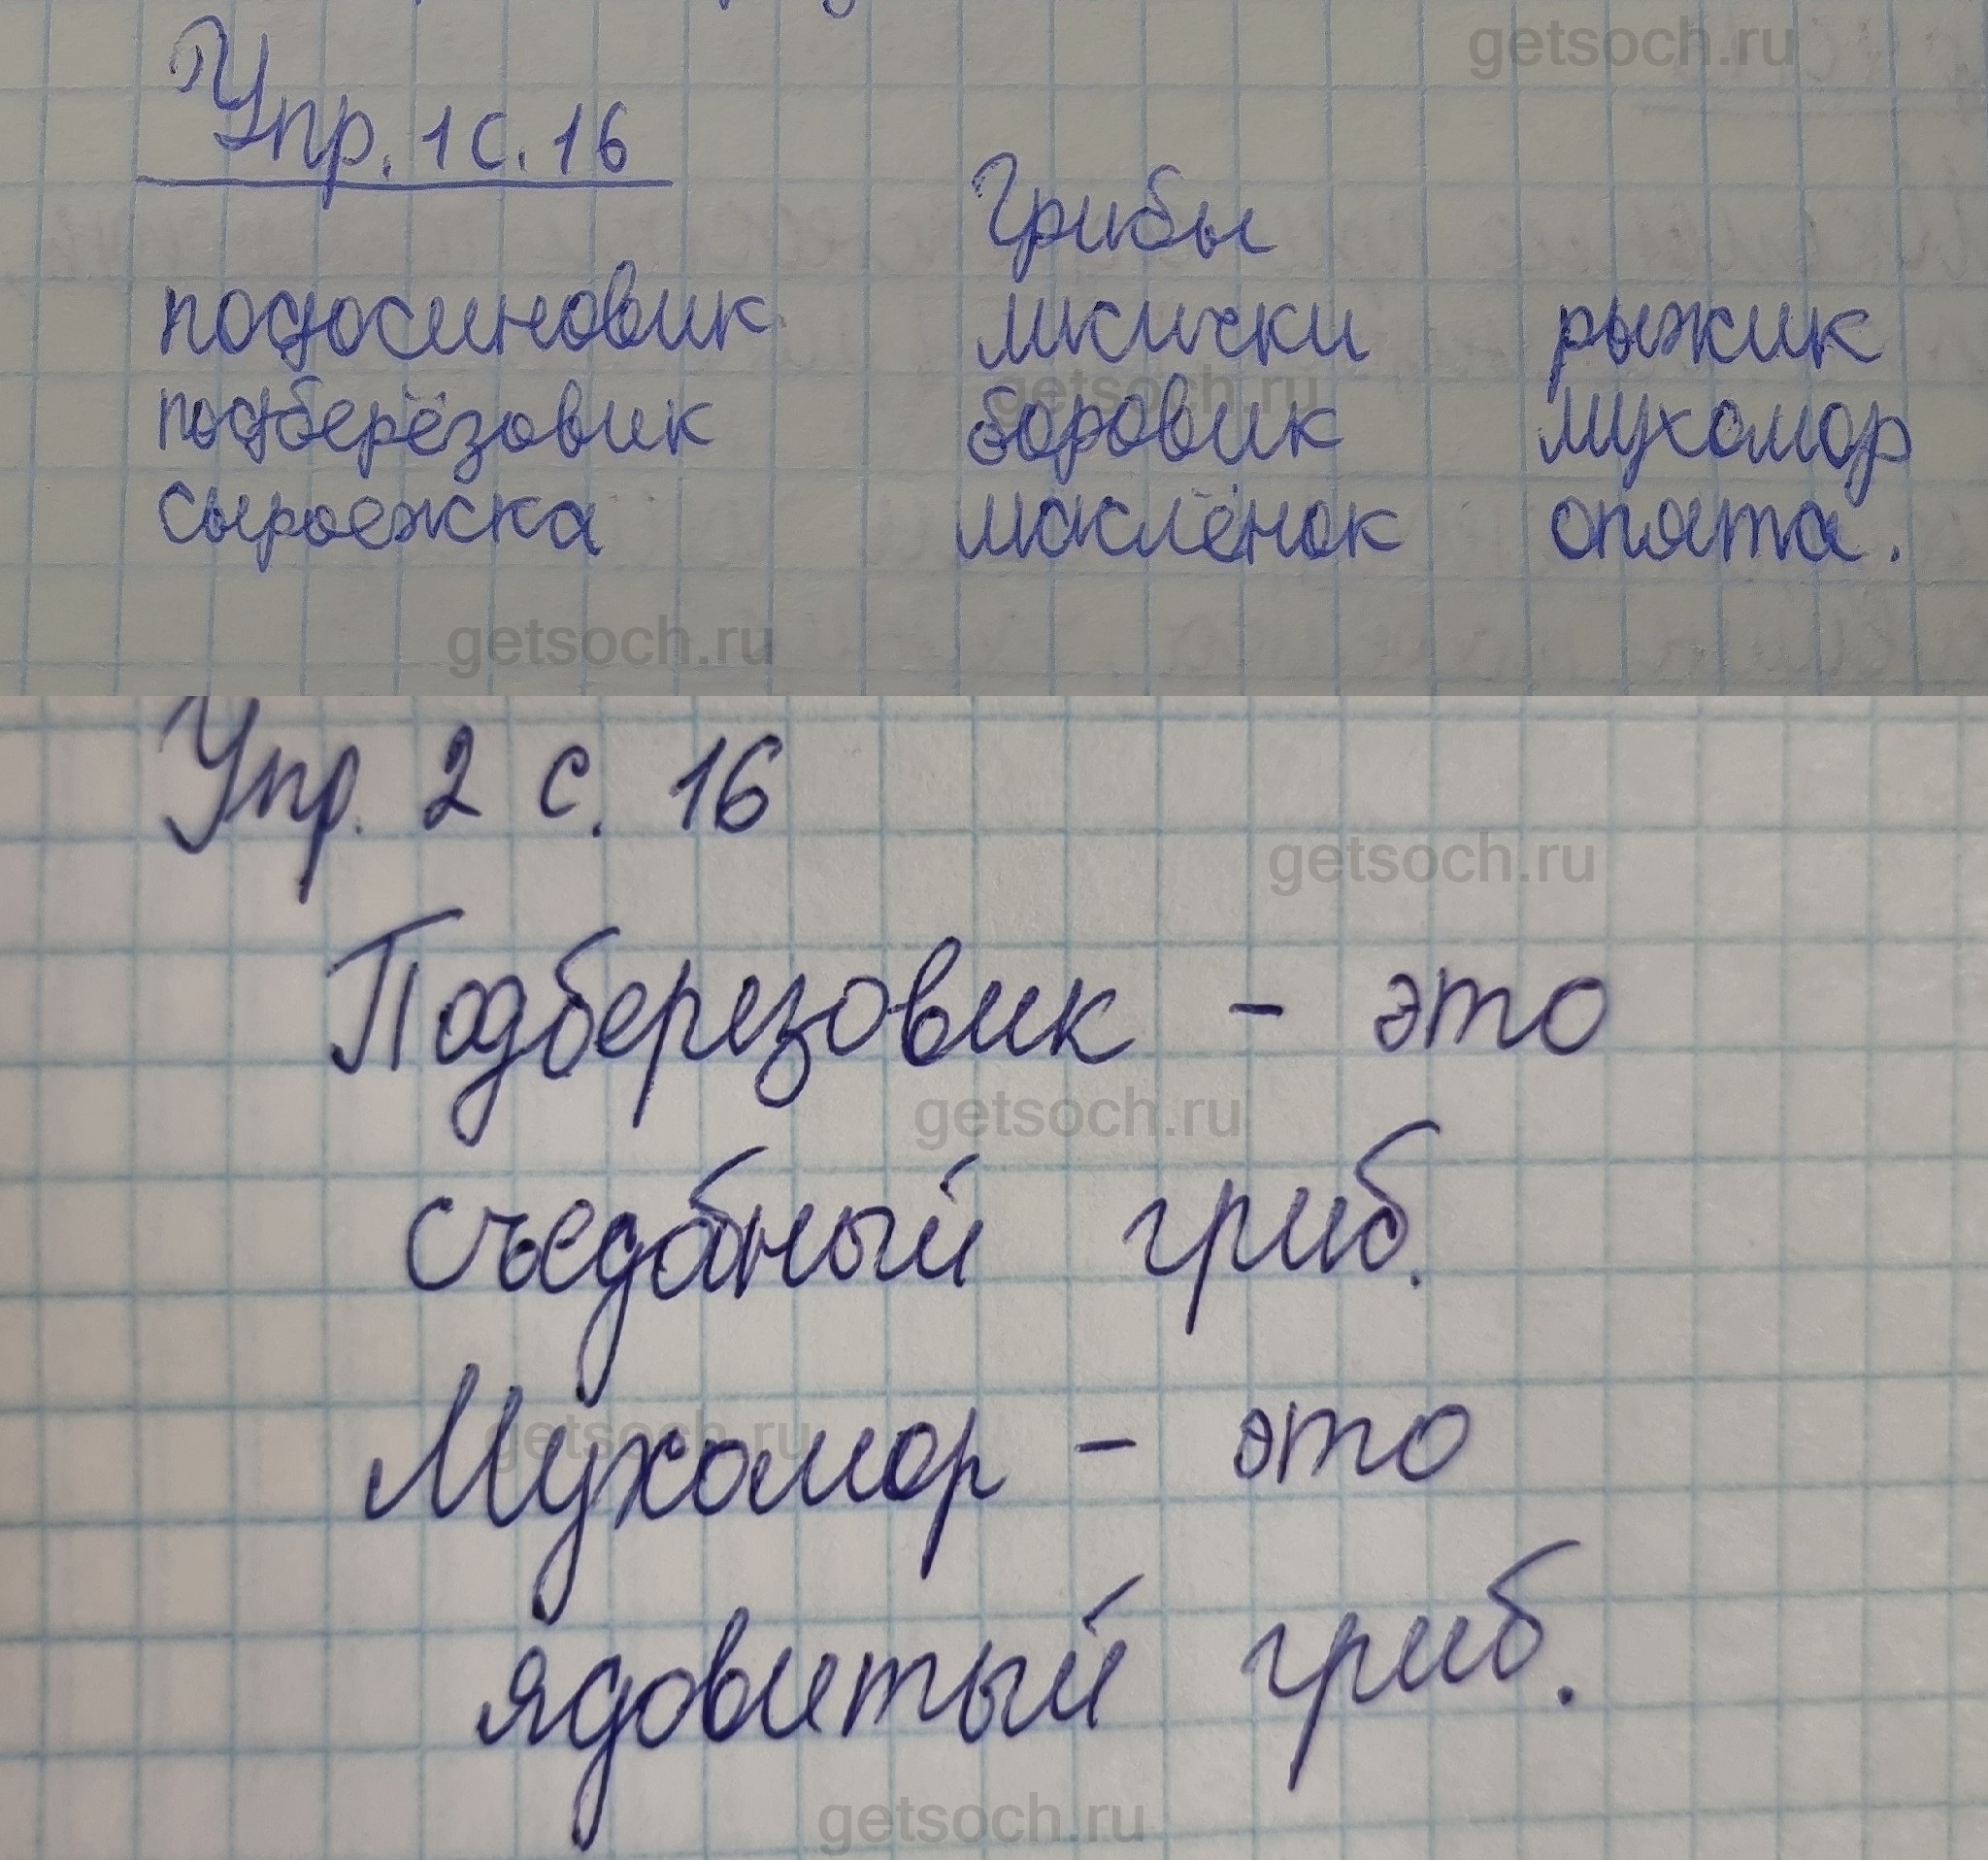 getsoch.ru
Упр. 1 с. 16
Грибы
подосиновик лисички рыжик
getsoch.ru
подберёзовик боровик мухомор
сыроежка маслёнок опята.
getsoch.ru
Упр. 2 с. 16
getsoch.ru
Подберезовик - это
getsoch.ru
съедобный гриб.
getsoch.ru
Мухомор - это
ядовитый гриб.
getsoch.ru